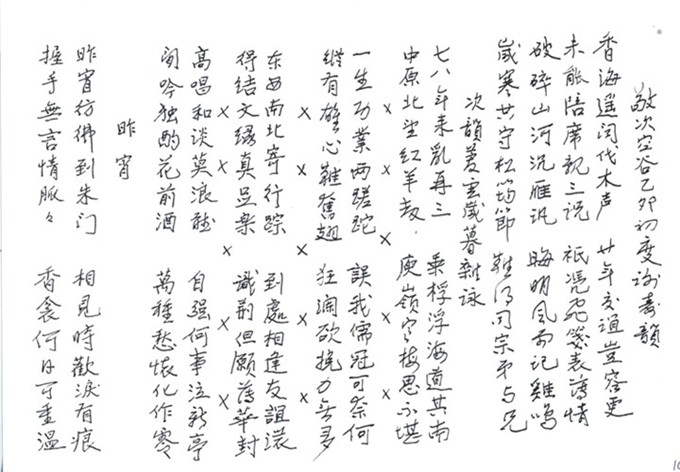 敬次空谷乙卯初度谢壽韻
香海遥闻伐木声 廿年交誼豈容更
未能陪席親三祝 祇憑飛箋表薄情
破碎山河沉雁訊 晦明風雨记雞鳴
歲寒共守松筠節 難得同宗弟与兄
次韻菱雲歲暮雜詠
七八年来亂再三 乘桴浮海道其南
中原北望红羊劫 庾嶺寒梅思不堪
× × × ×
一生功業两蹉跎 誤我儒冠可奈何
縱有雄心難奮翅 狂澜欲挽力無多
× × × ×
东西南北寄行踪 到處相逢友誼濃
得结文缘真足樂 識荆但願薄華封
× × × ×
高唱和谈莫浪聽 自强何事泣新亭
闲吟独酌花前酒 萬種愁怀化作零
昨宵
昨宵彷彿到朱门 相見時歡淚有痕
握手無言情脈々 香衾何日可重温